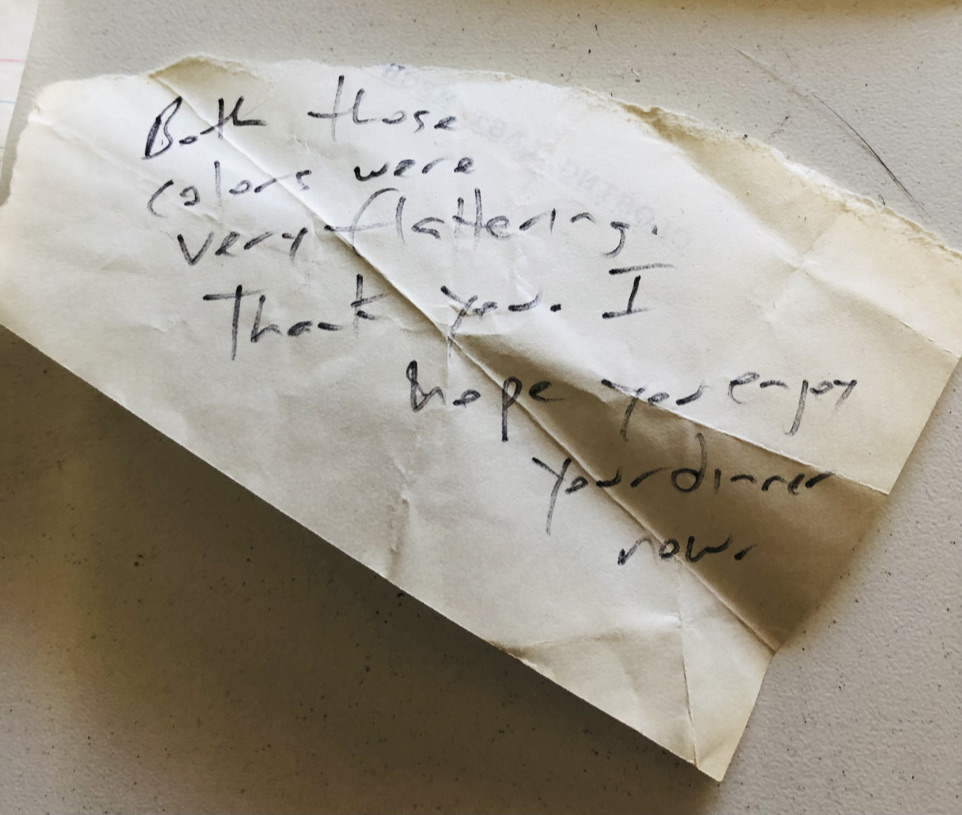 Both those
colors were
very flattering.
Thank you. I
hope you enjoy
your dinner
now.